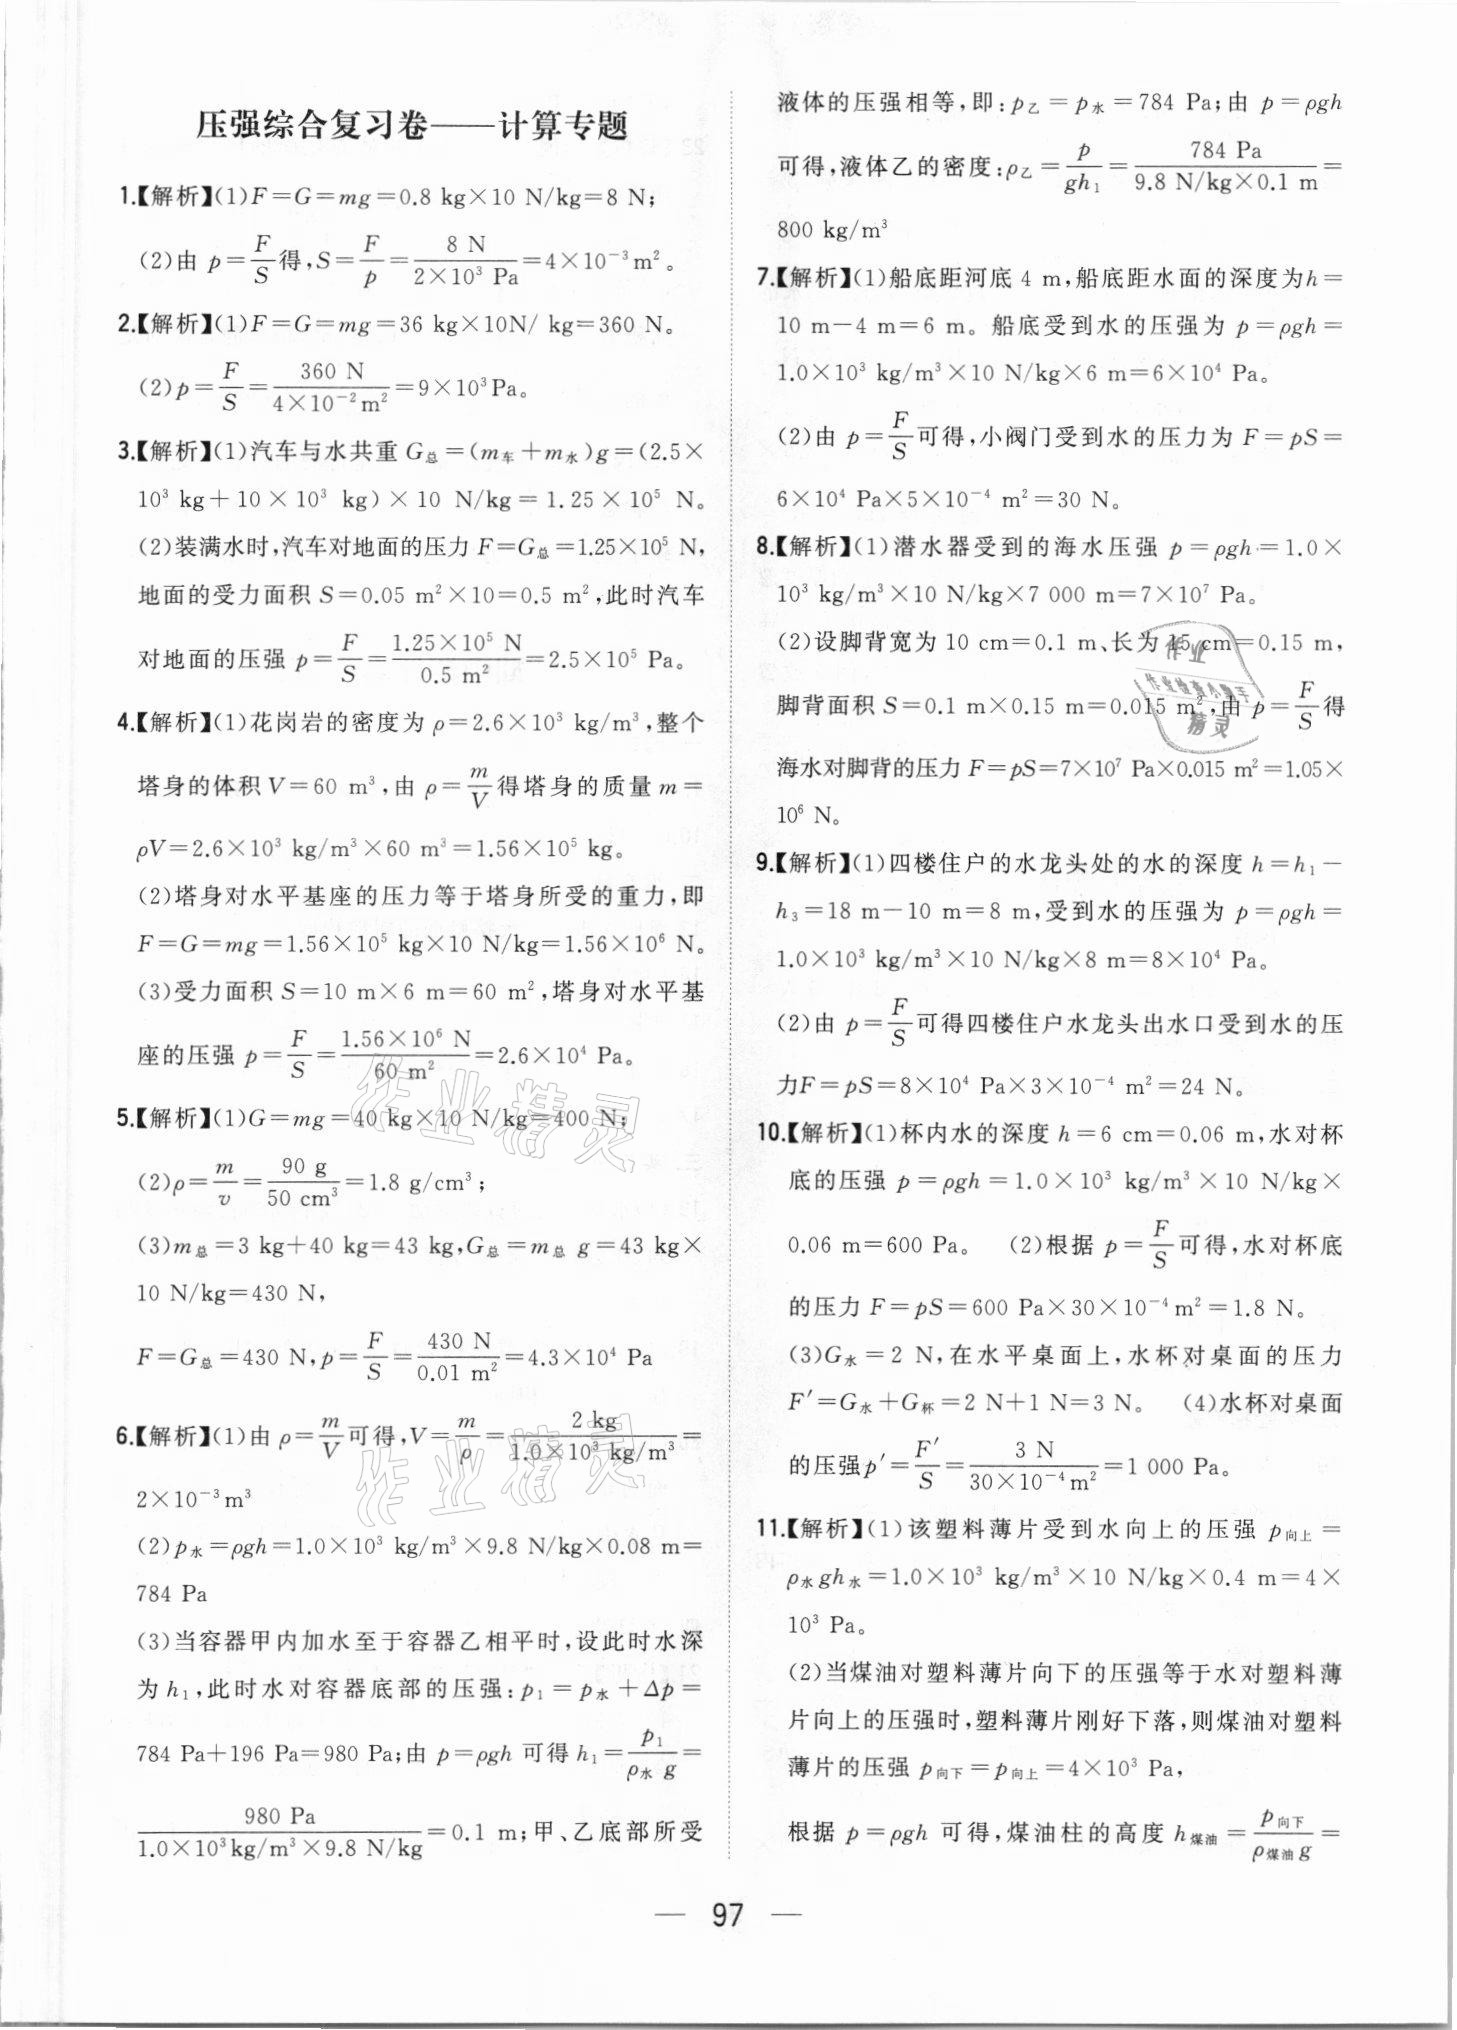 压强综合复习卷——计算专题
1.【解析】(1)F=G=mg=0.8 kg×10 N/kg=8 N;
(2)由 p=F/S得,S=F/p=8 N/2×10³ Pa=4×10⁻³m²。
2.【解析】(1)F=G=mg=36 kg×10N/ kg=360 N。
(2)p=F/S=360 N/4×10⁻²m²=9×10³Pa。
3.【解析】(1)汽车与水共重 G总=(m车+m水)g=(2.5×
10³ kg+10×10³ kg)×10 N/kg=1.25×10⁵ N。
(2)装满水时,汽车对地面的压力 F=G总=1.25×10⁵ N,
地面的受力面积 S=0.05 m²×10=0.5 m²,此时汽车
对地面的压强 p=F/S=1.25×10⁵ N/0.5 m²=2.5×10⁵ Pa。
4.【解析】(1)花岗岩的密度为 ρ=2.6×10³ kg/m³,整个
塔身的体积 V=60 m³,由 ρ=m/V得塔身的质量 m=
ρV=2.6×10³ kg/m³×60 m³=1.56×10⁵ kg。
(2)塔身对水平基座的压力等于塔身所受的重力,即
F=G=mg=1.56×10⁵ kg×10 N/kg=1.56×10⁶ N。
(3)受力面积 S=10 m×6 m=60 m²,塔身对水平基
座的压强 p=F/S=1.56×10⁶ N/60 m²=2.6×10⁴ Pa。
5.【解析】(1)G=mg=40 kg×10 N/kg=400 N;
(2)ρ=m/v=90 g/50 cm³=1.8 g/cm³;
(3)m总=3 kg+40 kg=43 kg,G总=m总 g=43 kg×
10 N/kg=430 N,
F=G总=430 N,p=F/S=430 N/0.01 m²=4.3×10⁴ Pa
6.【解析】(1)由 ρ=m/V可得,V=m/ρ=2 kg/1.0×10³ kg/m³=
2×10⁻³m³
(2)p水=ρgh=1.0×10³ kg/m³×9.8 N/kg×0.08 m=
784 Pa
(3)当容器甲内加水至于容器乙相平时,设此时水深
为 h₁,此时水对容器底部的压强:p₁=p水+Δp=
784 Pa+196 Pa=980 Pa;由 p=ρgh 可得 h₁=p₁/ρ水 g=
980 Pa/1.0×10³kg/m³×9.8 N/kg=0.1 m;甲、乙底部所受
液体的压强相等,即:p乙=p水=784 Pa;由 p=ρgh
可得,液体乙的密度:ρ乙=p/gh₁=784 Pa/9.8 N/kg×0.1 m=
800 kg/m³
7.【解析】(1)船底距河底 4 m,船底距水面的深度为h=
10 m-4 m=6 m。船底受到水的压强为 p=ρgh=
1.0×10³ kg/m³×10 N/kg×6 m=6×10⁴ Pa。
(2)由 p=F/S可得,小阀门受到水的压力为 F=pS=
6×10⁴ Pa×5×10⁻⁴ m²=30 N。
8.【解析】(1)潜水器受到的海水压强 p=ρgh=1.0×
10³ kg/m³×10 N/kg×7 000 m=7×10⁷ Pa。
(2)设脚背宽为 10 cm=0.1 m、长为 15 cm=0.15 m,
脚背面积 S=0.1 m×0.15 m=0.015 m²,由 p=F/S得
海水对脚背的压力 F=pS=7×10⁷ Pa×0.015 m²=1.05×
10⁶ N。
9.【解析】(1)四楼住户的水龙头处的水的深度 h=h₁-
h₃=18 m-10 m=8 m,受到水的压强为 p=ρgh=
1.0×10³ kg/m³×10 N/kg×8 m=8×10⁴ Pa。
(2)由 p=F/S可得四楼住户水龙头出水口受到水的压
力F=pS=8×10⁴ Pa×3×10⁻⁴ m²=24 N。
10.【解析】(1)杯内水的深度 h=6 cm=0.06 m,水对杯
底的压强 p=ρgh=1.0×10³ kg/m³×10 N/kg×
0.06 m=600 Pa。 (2)根据 p=F/S可得,水对杯底
的压力 F=pS=600 Pa×30×10⁻⁴m²=1.8 N。
(3)G水=2 N,在水平桌面上,水杯对桌面的压力
F′=G水+G杯=2 N+1 N=3 N。 (4)水杯对桌面
的压强p′=F′/S=3 N/30×10⁻⁴m²=1 000 Pa。
11.【解析】(1)该塑料薄片受到水向上的压强 p向上=
ρ水gh水=1.0×10³ kg/m³×10 N/kg×0.4 m=4×
10³ Pa。
(2)当煤油对塑料薄片向下的压强等于水对塑料薄
片向上的压强时,塑料薄片刚好下落,则煤油对塑料
薄片的压强 p向下=p向上=4×10³ Pa,
根据 p=ρgh 可得,煤油柱的高度 h煤油=p向下/ρ煤油g=
作业
作业检查小助手
精灵
作业精灵
作业精灵
— 97 —